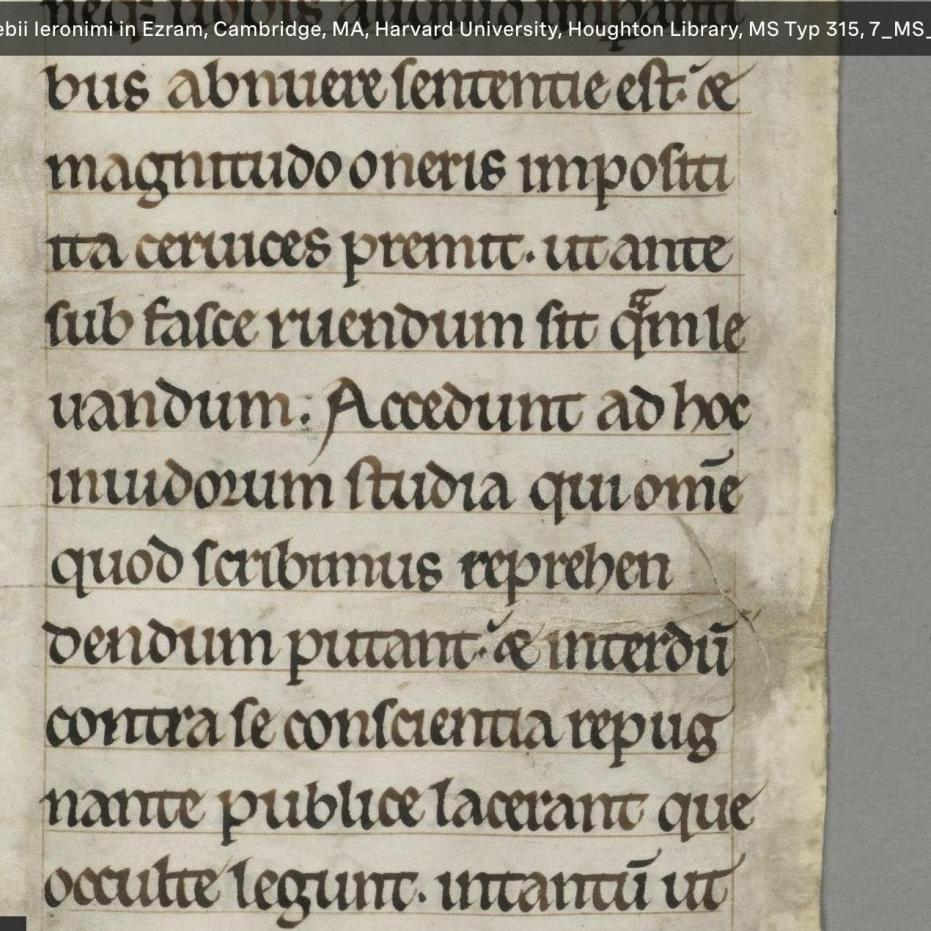 ebii Ieronimi in Ezram, Cambridge, MA, Harvard University, Houghton Library, MS Typ 315, 7_MS_
neq; uobis aliquid imperanti
bus abnuere sententie est· &
magnitudo oneris impositi
ita ceruices premit. ut ante
sub fasce ruendum sit qͣm le
uandum. Accedunt ad hoc
inuidorum studia qui om̄e
quod scribimus reprehen
dendum putant· & interdū
contra se conscientia repug
nante publice lacerant que
occulte legunt. intantū ut